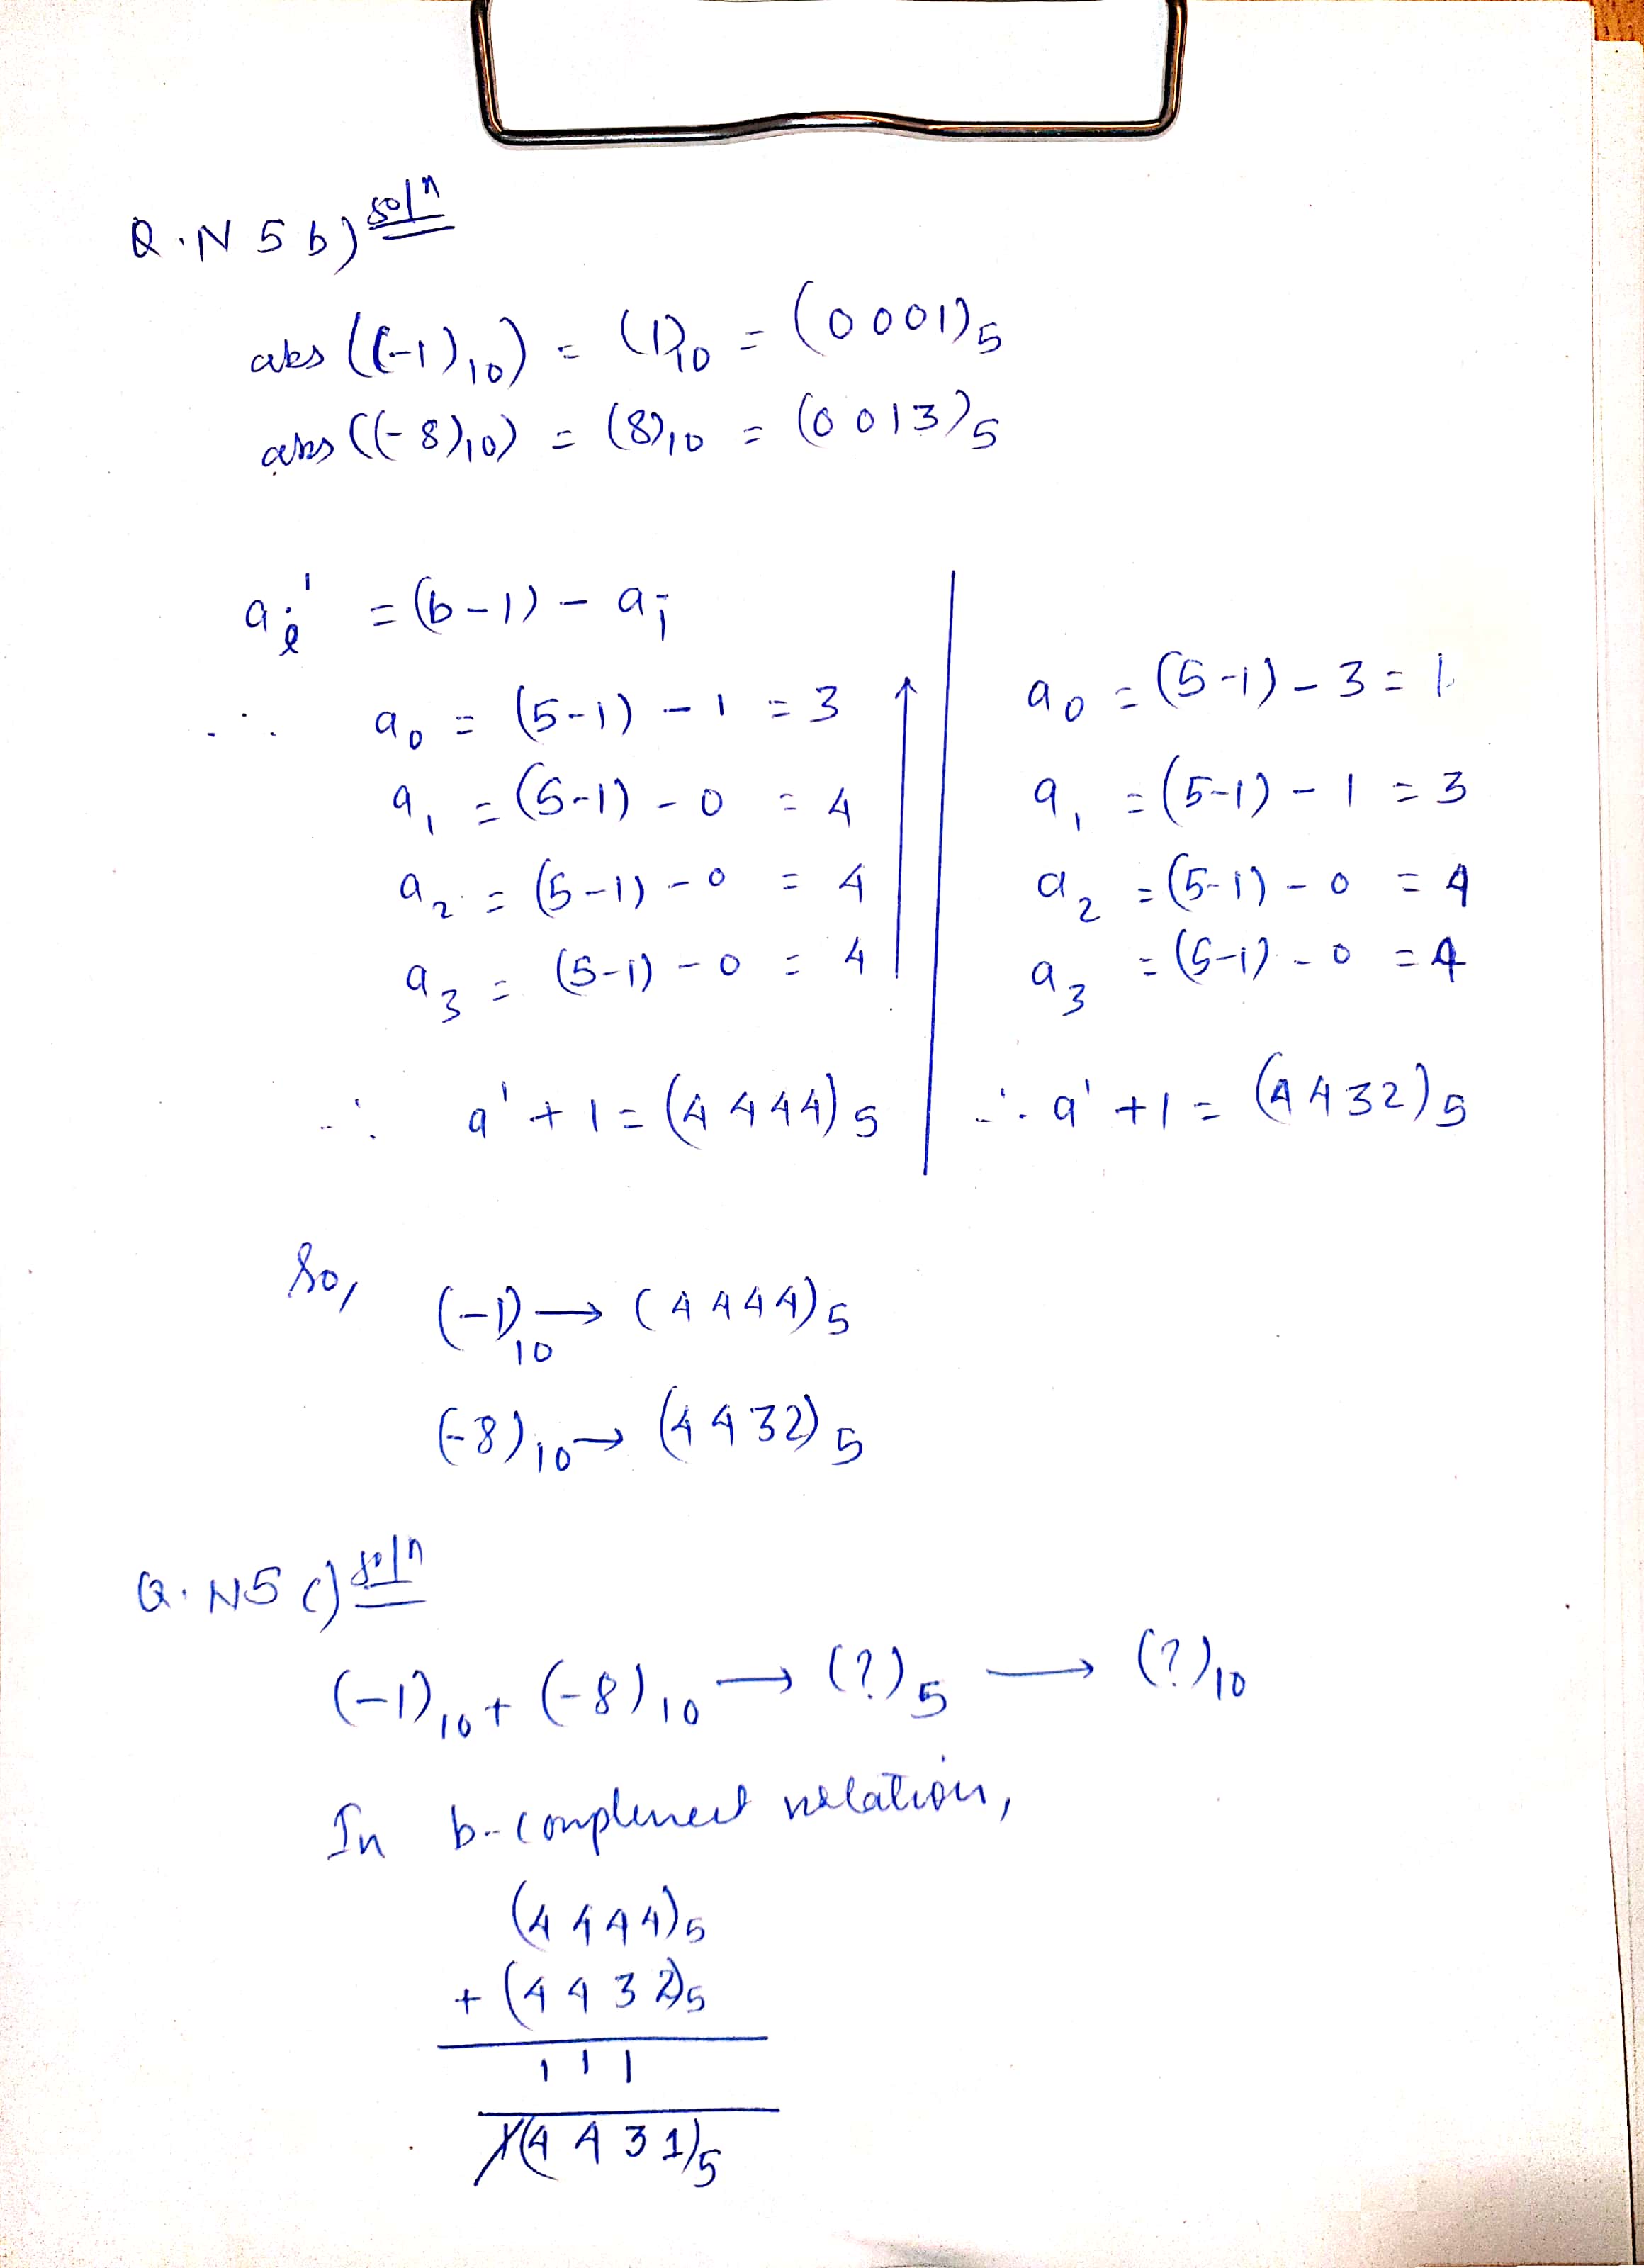 Q.N 5 b) solⁿ
abs ((-1)₁₀) = (1)₁₀ = (0001)₅
abs ((-8)₁₀) = (8)₁₀ = (0013)₅
aᵢ' = (b-1) - aᵢ
∴ a₀ = (5-1) - 1 = 3
a₁ = (5-1) - 0 = 4
a₂ = (5-1) - 0 = 4
a₃ = (5-1) - 0 = 4
∴ a' + 1 = (4444)₅
a₀ = (5-1) - 3 = 1
a₁ = (5-1) - 1 = 3
a₂ = (5-1) - 0 = 4
a₃ = (5-1) - 0 = 4
∴ a' + 1 = (4432)₅
So,
(-1)₁₀ → (4444)₅
(-8)₁₀ → (4432)₅
Q.N5 c) solⁿ
(-1)₁₀ + (-8)₁₀ → (?)₅ → (?)₁₀
In b-complement relation,
(4444)₅
+ (4432)₅
1 1 1
1(4431)₅